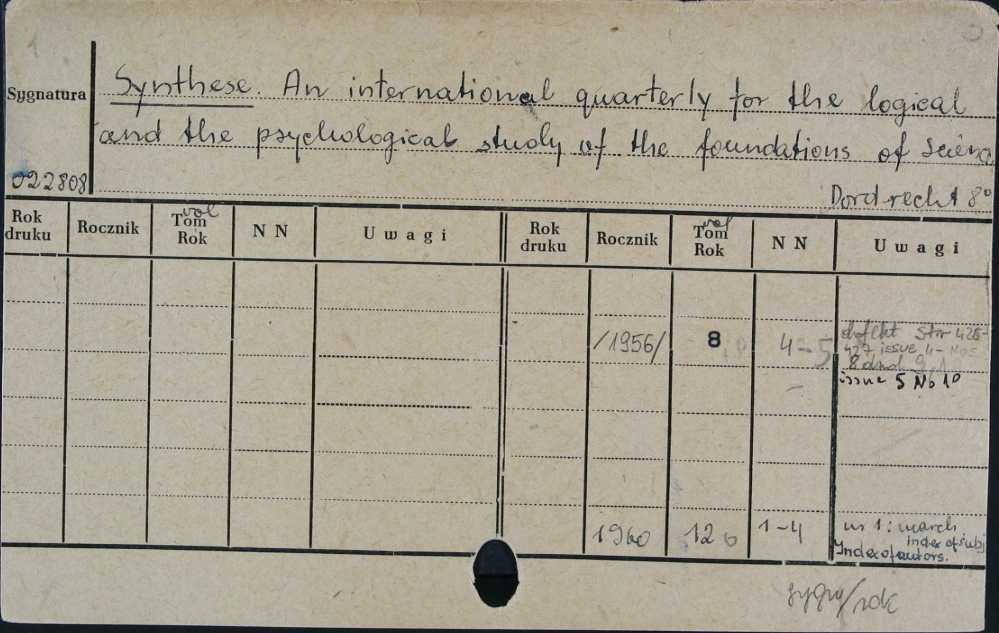 Synthese. An international quarterly for the logical
Sygnatura
and the psychological study of the foundations of scienc
022808
Dordrecht 8°
Rok druku Rocznik vol Tom Rok NN Uwagi Rok druku Rocznik vol Tom Rok NN Uwagi
/1956/ 8 4-5 defekt str 426-
427 issue 4- Nos
8 and 9,
issue 5 No 10
1960 12 1-4 nr 1: march
index of subj
Index of autors.